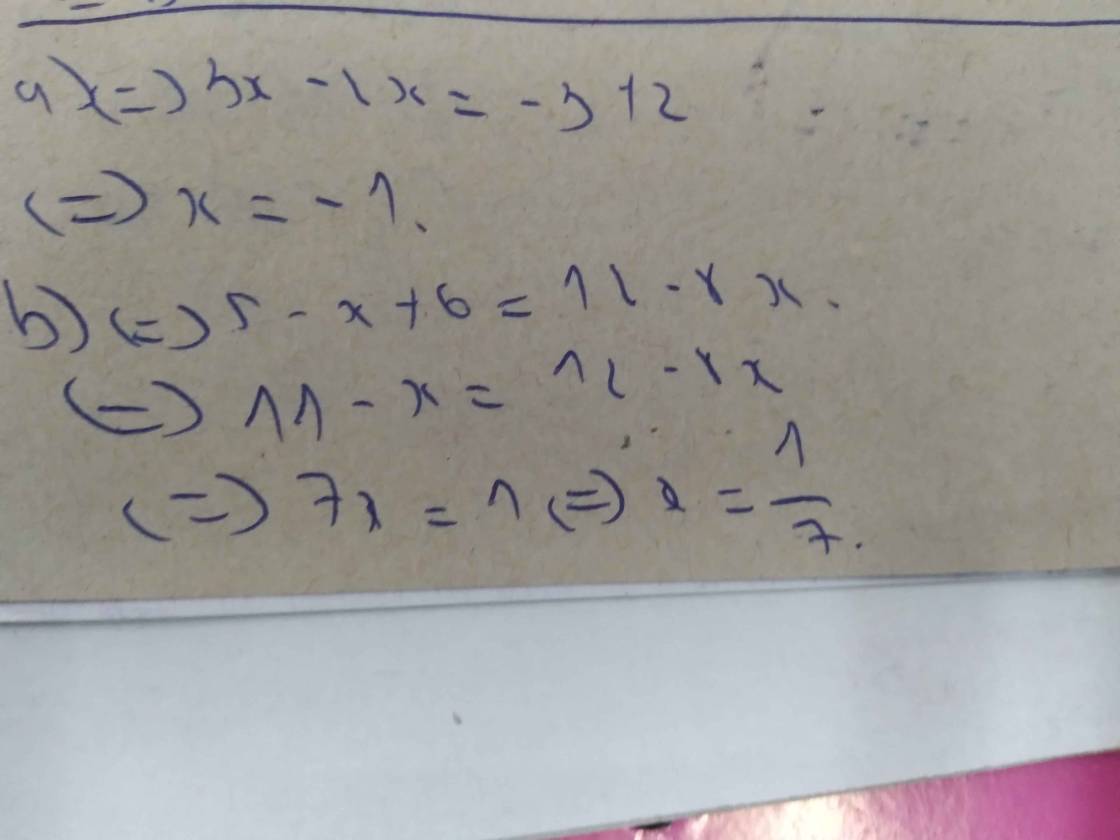 a) (=) 3x - 2x = -3 + 2
(=) x = -1.
b) (=) 5 - x + 6 = 12 - 8x.
(=) 11 - x = 12 - 8x
(=) 7x = 1 (=) x = 1/7.